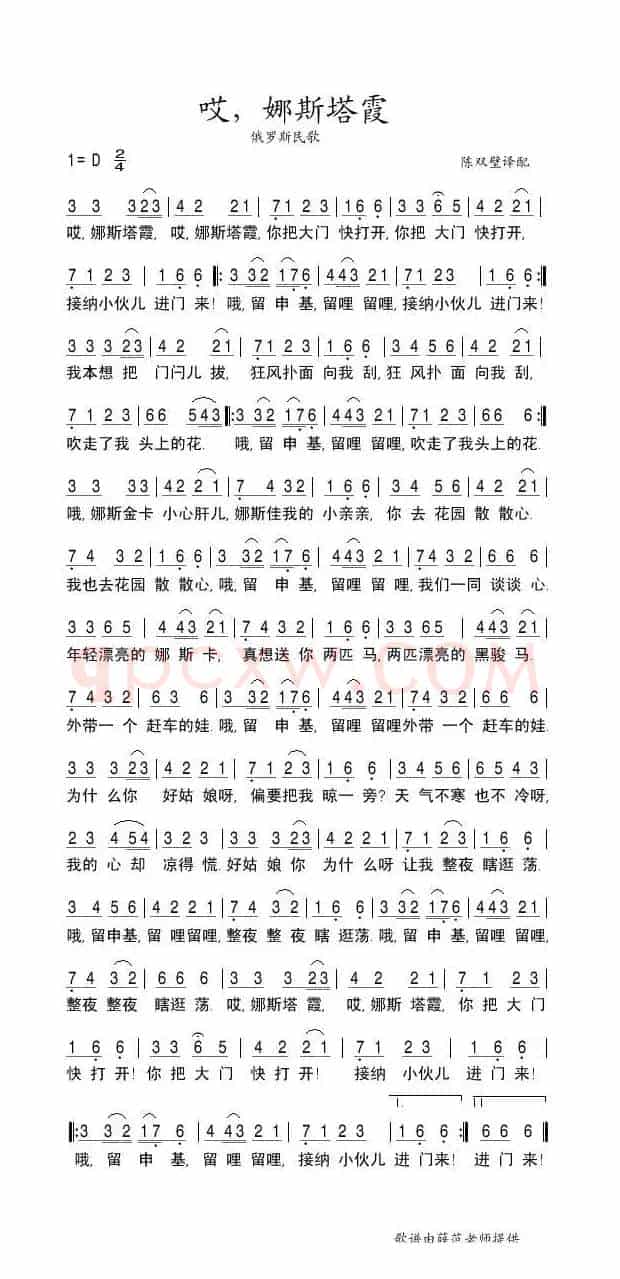 哎，娜斯塔霞
俄罗斯民歌
1= D 2/4
陈双壁译配
3 3 323 | 4 2 21 | 71 2 3 | 16 6 | 3 3 6 5 | 4 2 21 |
哎,娜斯塔霞, 哎,娜斯塔霞,你把大门 快打开,你把 大门 快打开,
7 1 2 3 | 1 6 6 |: 3 32 176 | 443 21 | 7 1 2 3 | 1 6 6 :|
接纳小伙儿 进门来! 哦,留 申 基,留哩 留哩,接纳小伙儿 进门来!
3 3 3 23 | 4 2 21 | 7 1 2 3 | 1 6 6 | 3 4 5 6 | 4 2 21 |
我本想 把 门闩儿 拔, 狂风扑面 向我 刮,狂 风扑 面 向我 刮,
7 1 2 3 | 66 543 |: 3 32 176 | 443 21 | 7 1 2 3 | 6 6 6 :|
吹走了我 头上的花. 哦,留 申 基,留哩 留哩,吹走了我头上的花.
3 3 33 | 42 21 | 7 4 32 | 1 6 6 | 3 3 6 5 | 4 43 21 |
哦,娜斯金卡 小心肝儿,娜斯佳我的 小亲亲,你 去 花园 散 散心.
7 4 32 | 1 6 6 | 3 32 176 | 443 21 | 7 4 3 2 | 1 6 6 |
我也去花园 散 散心,哦,留 申 基, 留哩 留 哩,我们一同 谈谈 心.
3 3 6 5 | 4 43 21 | 7 4 32 | 1 6 6 | 3 3 65 | 443 21 |
年轻漂亮的 娜 斯 卡, 真想送 你 两匹 马,两匹漂亮的 黑骏 马.
7 4 3 2 | 6 3 | 3 32 176 | 443 21 | 7 4 3 2 | 6 3 |
外带一 个 赶车的娃.哦,留 申 基, 留哩 留哩外带 一 个 赶车的娃.
3 3 3 23 | 4 2 21 | 7 1 2 3 | 1 6 6 | 3 4 5 6 | 6 5 4 3 |
为什 么你 好姑 娘呀,偏要把我 晾一 旁? 天 气不寒 也不 冷呀,
2 3 4 54 | 4 2 3 | 3 3 3 23 | 4 2 21 | 7 1 2 3 | 1 6 6 |
我的 心 却 凉得 慌.好姑 娘你 为什 么呀 让我 整夜 瞎逛 荡.
3 4 5 6 | 443 21 | 7 4 3 2 | 1 6 6 | 3 32 176 | 443 21 |
哦,留申基, 留 哩留哩,整夜 整 夜 瞎 逛荡.哦,留 申 基,留哩 留哩,
7 4 3 2 | 1 6 6 | 3 3 3 23 | 4 2 21 | 7 1 2 3 |
整夜 整夜 瞎逛 荡. 哎,娜斯 塔 霞, 哎,娜斯 塔霞, 你 把 大门
1 6 6 | 3 3 6 5 | 4 2 21 | 7 1 2 3 | 1 6 6 |
快打开! 你把 大门 快打 开! 接纳 小伙儿 进门 来!
1. 2.
|: 3 32 17 6 | 4 43 21 | 7 1 23 | 1 6 6 :| 66 6 ||
哦, 留 申 基, 留 哩 留哩, 接纳 小伙儿 进 门来! 进门 来!
qpcxw.com
歌谱由薛范老师提供